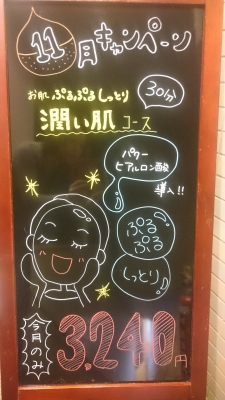 11月キャンペーン
30分
お肌ぷるぷるしっとり
潤い肌コース
パワー
ヒアルロン酸
導入!!
ぷる
ぷる
しっとり
今月のみ
3,240円